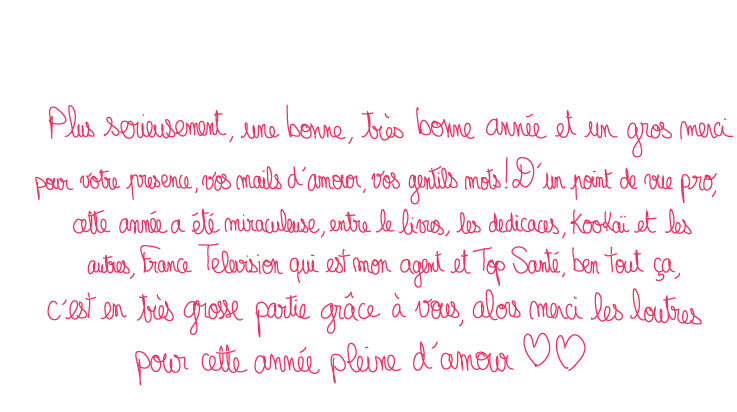 Plus serieusement, une bonne, très bonne année et un gros merci
pour votre presence, vos mails d'amour, vos gentils mots! D'un point de vue pro,
cette année a été miraculeuse, entre le livres, les dedicaces, Kookaï et les
autres, France Television qui est mon agent et Top Santé, ben tout ça,
c'est en très grosse partie grâce à vous, alors merci les loutres
pour cette année pleine d'amour ♡♡